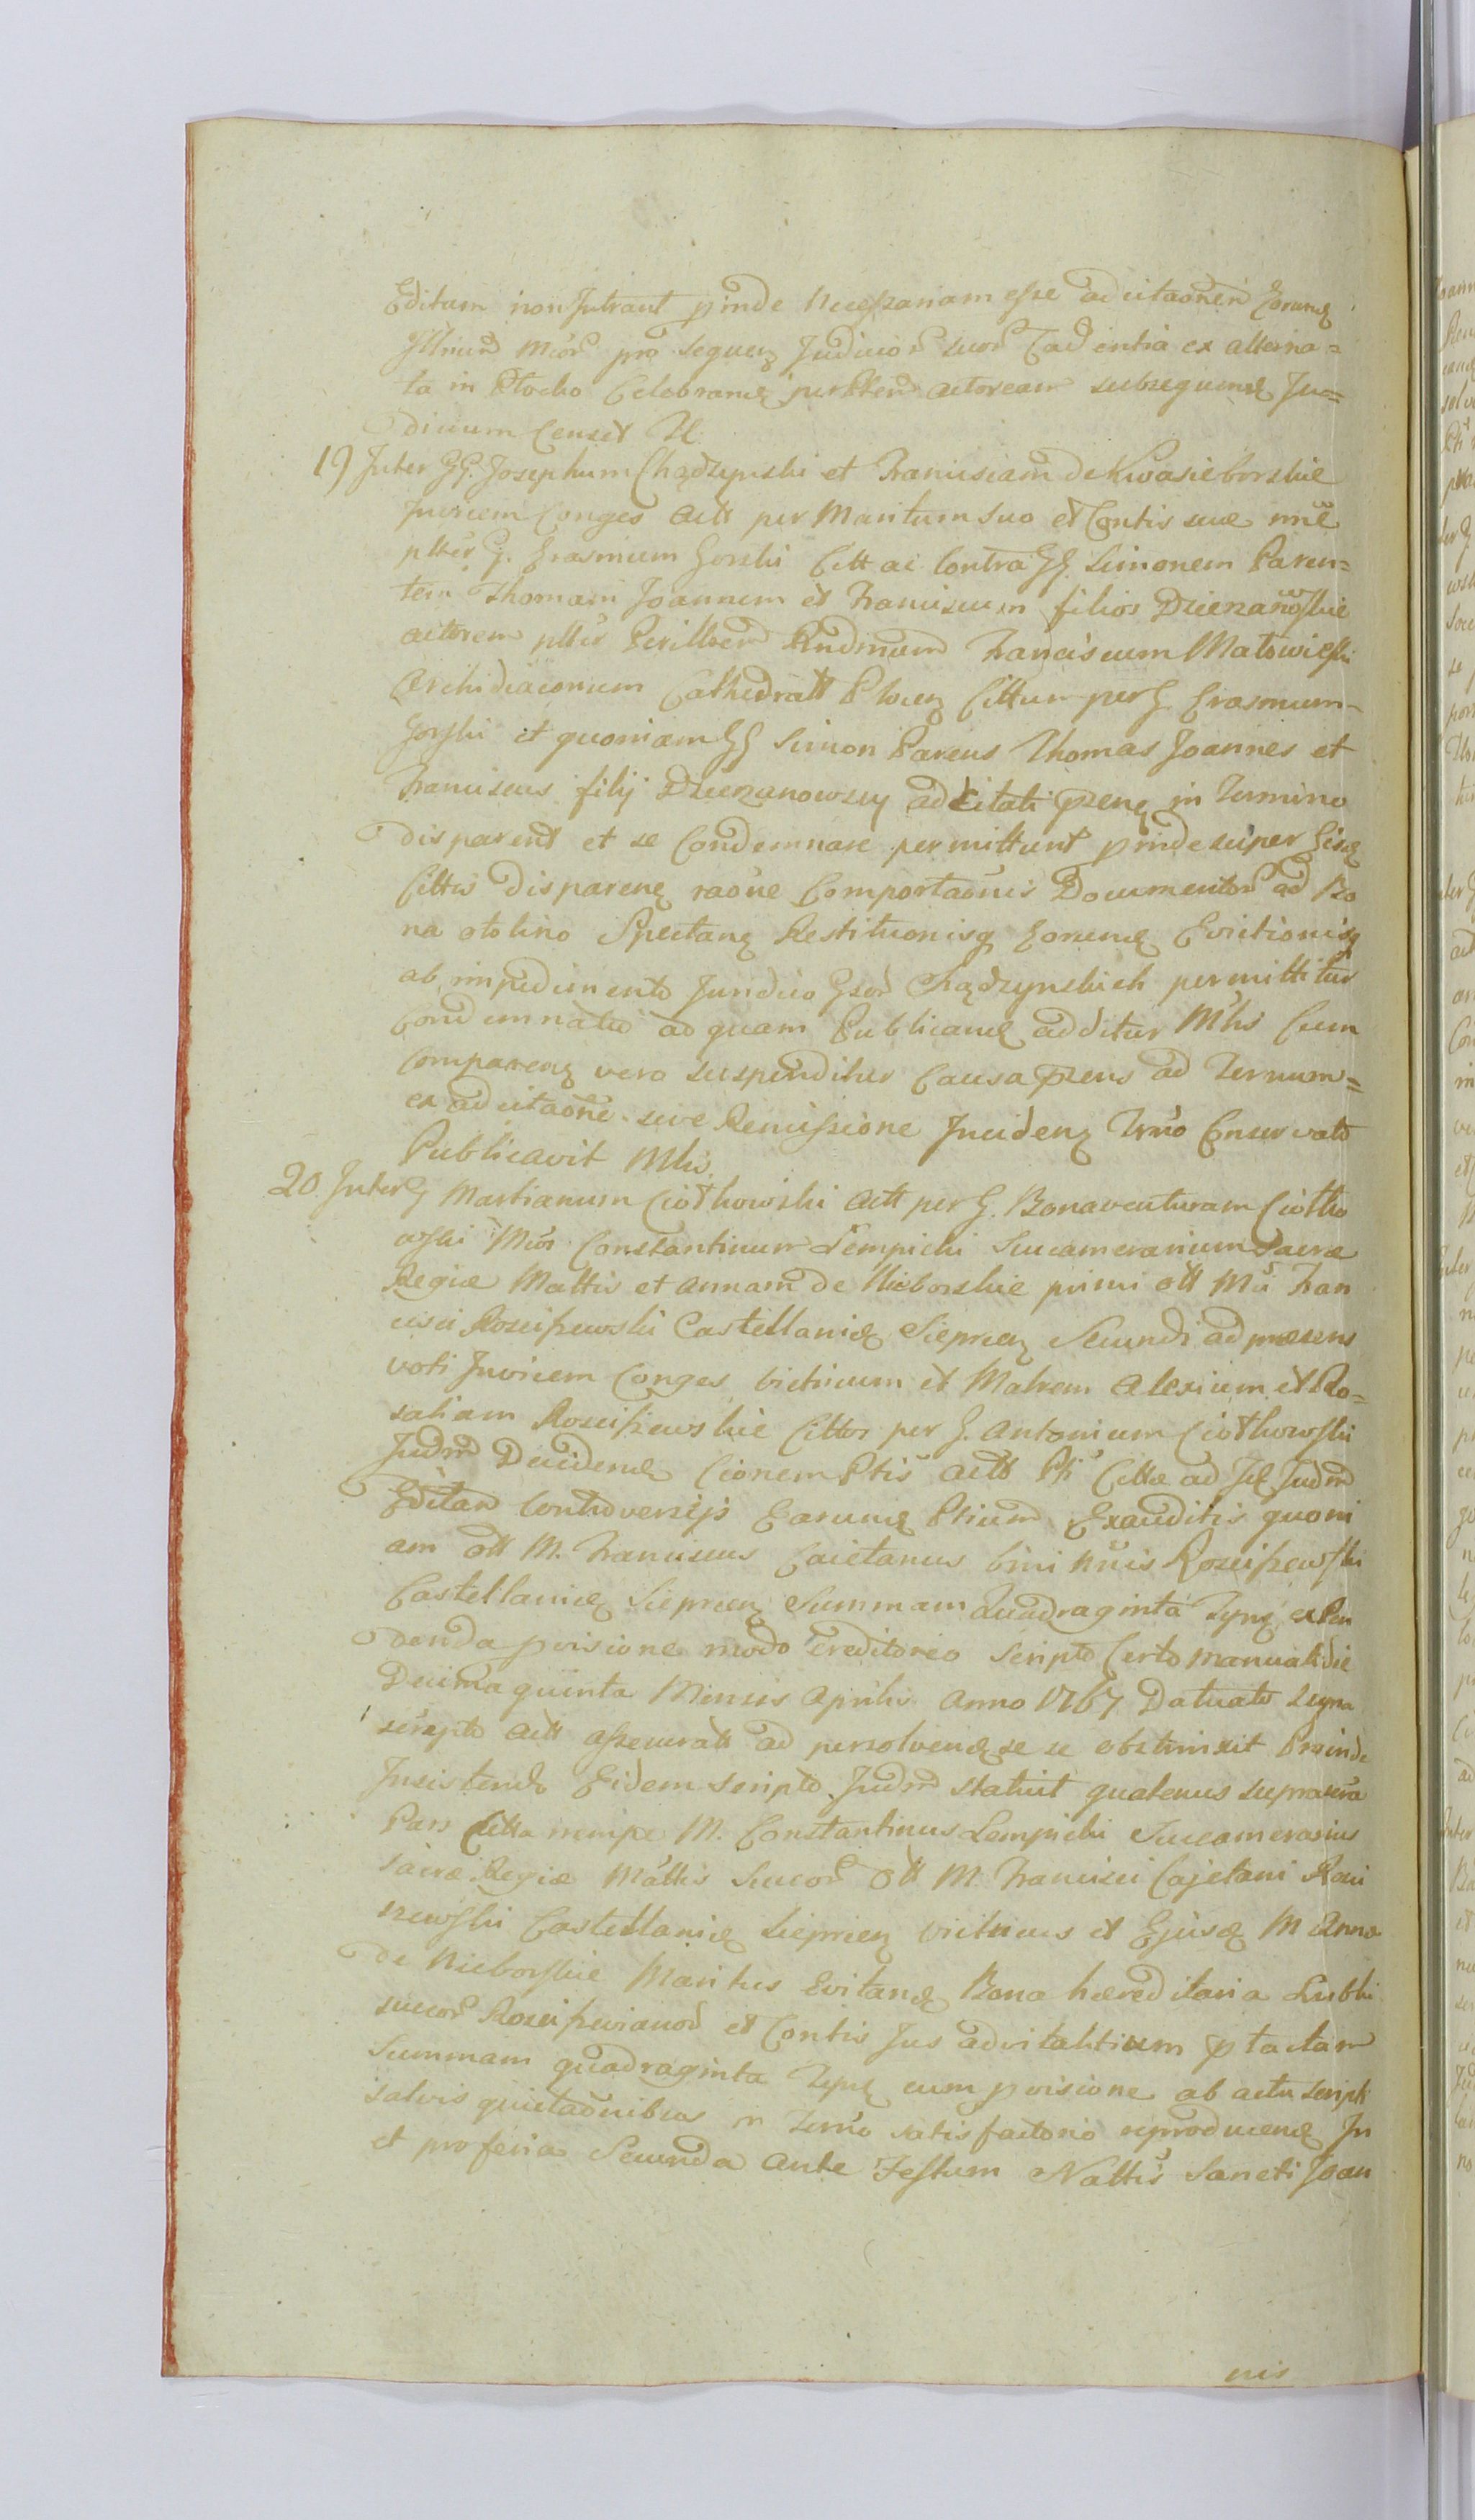 Editam non Intrant pinde Necessariam esse adcitaonem Eorund
Illrium Mior pro sequen Judicior suor Cadentia ex alterna=
ta in Plocko Celebrand per Pttem actoream subsequend Ju=
dicium Censet M.
19 Inter GG. Josephum Chądzynski et Franciscam de Kwasieborskie
Invicem Conges Actt per Maritum suo et Contis suæ nne
ptter G. Erasmum Gorski Citt ac Contra GG. Simonem Paren=
tem Thomam Joannem et Franciscum filios Dzierzanowskie
actorem ptter Perillrem Rndmum Franciscum Matowieski
Archidiaconum Cathedratt Plocen Cittum per G. Erasmum
Gorski et quoniam GG Simon Parens Thomas Joannes et
Franciscus filij Dzierzanowscy adcitati pzens in Termino
disparent et se Condemnare permittunt pinde super Eisd
Cittis disparend raone Comportaonis Documentor ad Bo
na otolino Spectan Restitutionisq Eorund Evictionisq
ab impedimento Juridico Gsor Chądzynskich permittitur
Condemnatio ad quam Publicand additur Mhs Cum
Comparen vero suspenditur Causa pzens ad Ternum=
ex adcitaone sive Remissione Inciden Trno Conservato
Publicavit Mhs.
20 Inter G Martianum Ciołkowski Actt per G. Bonaventuram Ciołko
wski Mcos Constantinum Lempicki Succamerarium Sacræ
Regiæ Mattis et Annam de Nieborskie primi ott Mci Fran
cisci Rosciszewski Castellanid Sieprcen Secundi ad præsens
voti Invicem Conges Victricum et Matrem Alexium et Ro=
saliam Rosciszewskie Cittos per G. Antonium Ciołkowski
Judm Decidend Cionem Ptis Actt Pti Cittæ ad Id Judm
Editam Controversijs Earund Ptium Exauditis quoni
am ott M. Franciscus Caietanus bini nnis Rosciszewski
Castellanid Sieprcen Summam Quadraginta Tynf ex Pen
denda pvisione modo creditoreo Scripto Certo manuali die
Decima quinta Mensis Aprilis Anno 1767 Datuato supra
scripto Actt assecuratt ad persolvend se se obstrinxit Proinde
Insistendo Eidem scripto Judm statuit quatenus suprascra
Pars Citta nempe M. Constantinus Lempicki Succamerarius
Sacræ Regiæ Mattis Succor Ott M. Francisci Cajetani Rosci
szewski Castellanid Sieprcen victricus et Ejusd M Annæ
de Nieborskie Maritus Evitand Bona hæreditaria Lubki
succor Rosciszevianor et Contis Jus advitalitium p tactam
Summam quadraginta Tynf cum pvisione ab actu scripti
salvis quietaonibus in Trno satisfactorio reproducend In
et pro feria Secunda Ante Festum Nattis Sancti Joan
nis